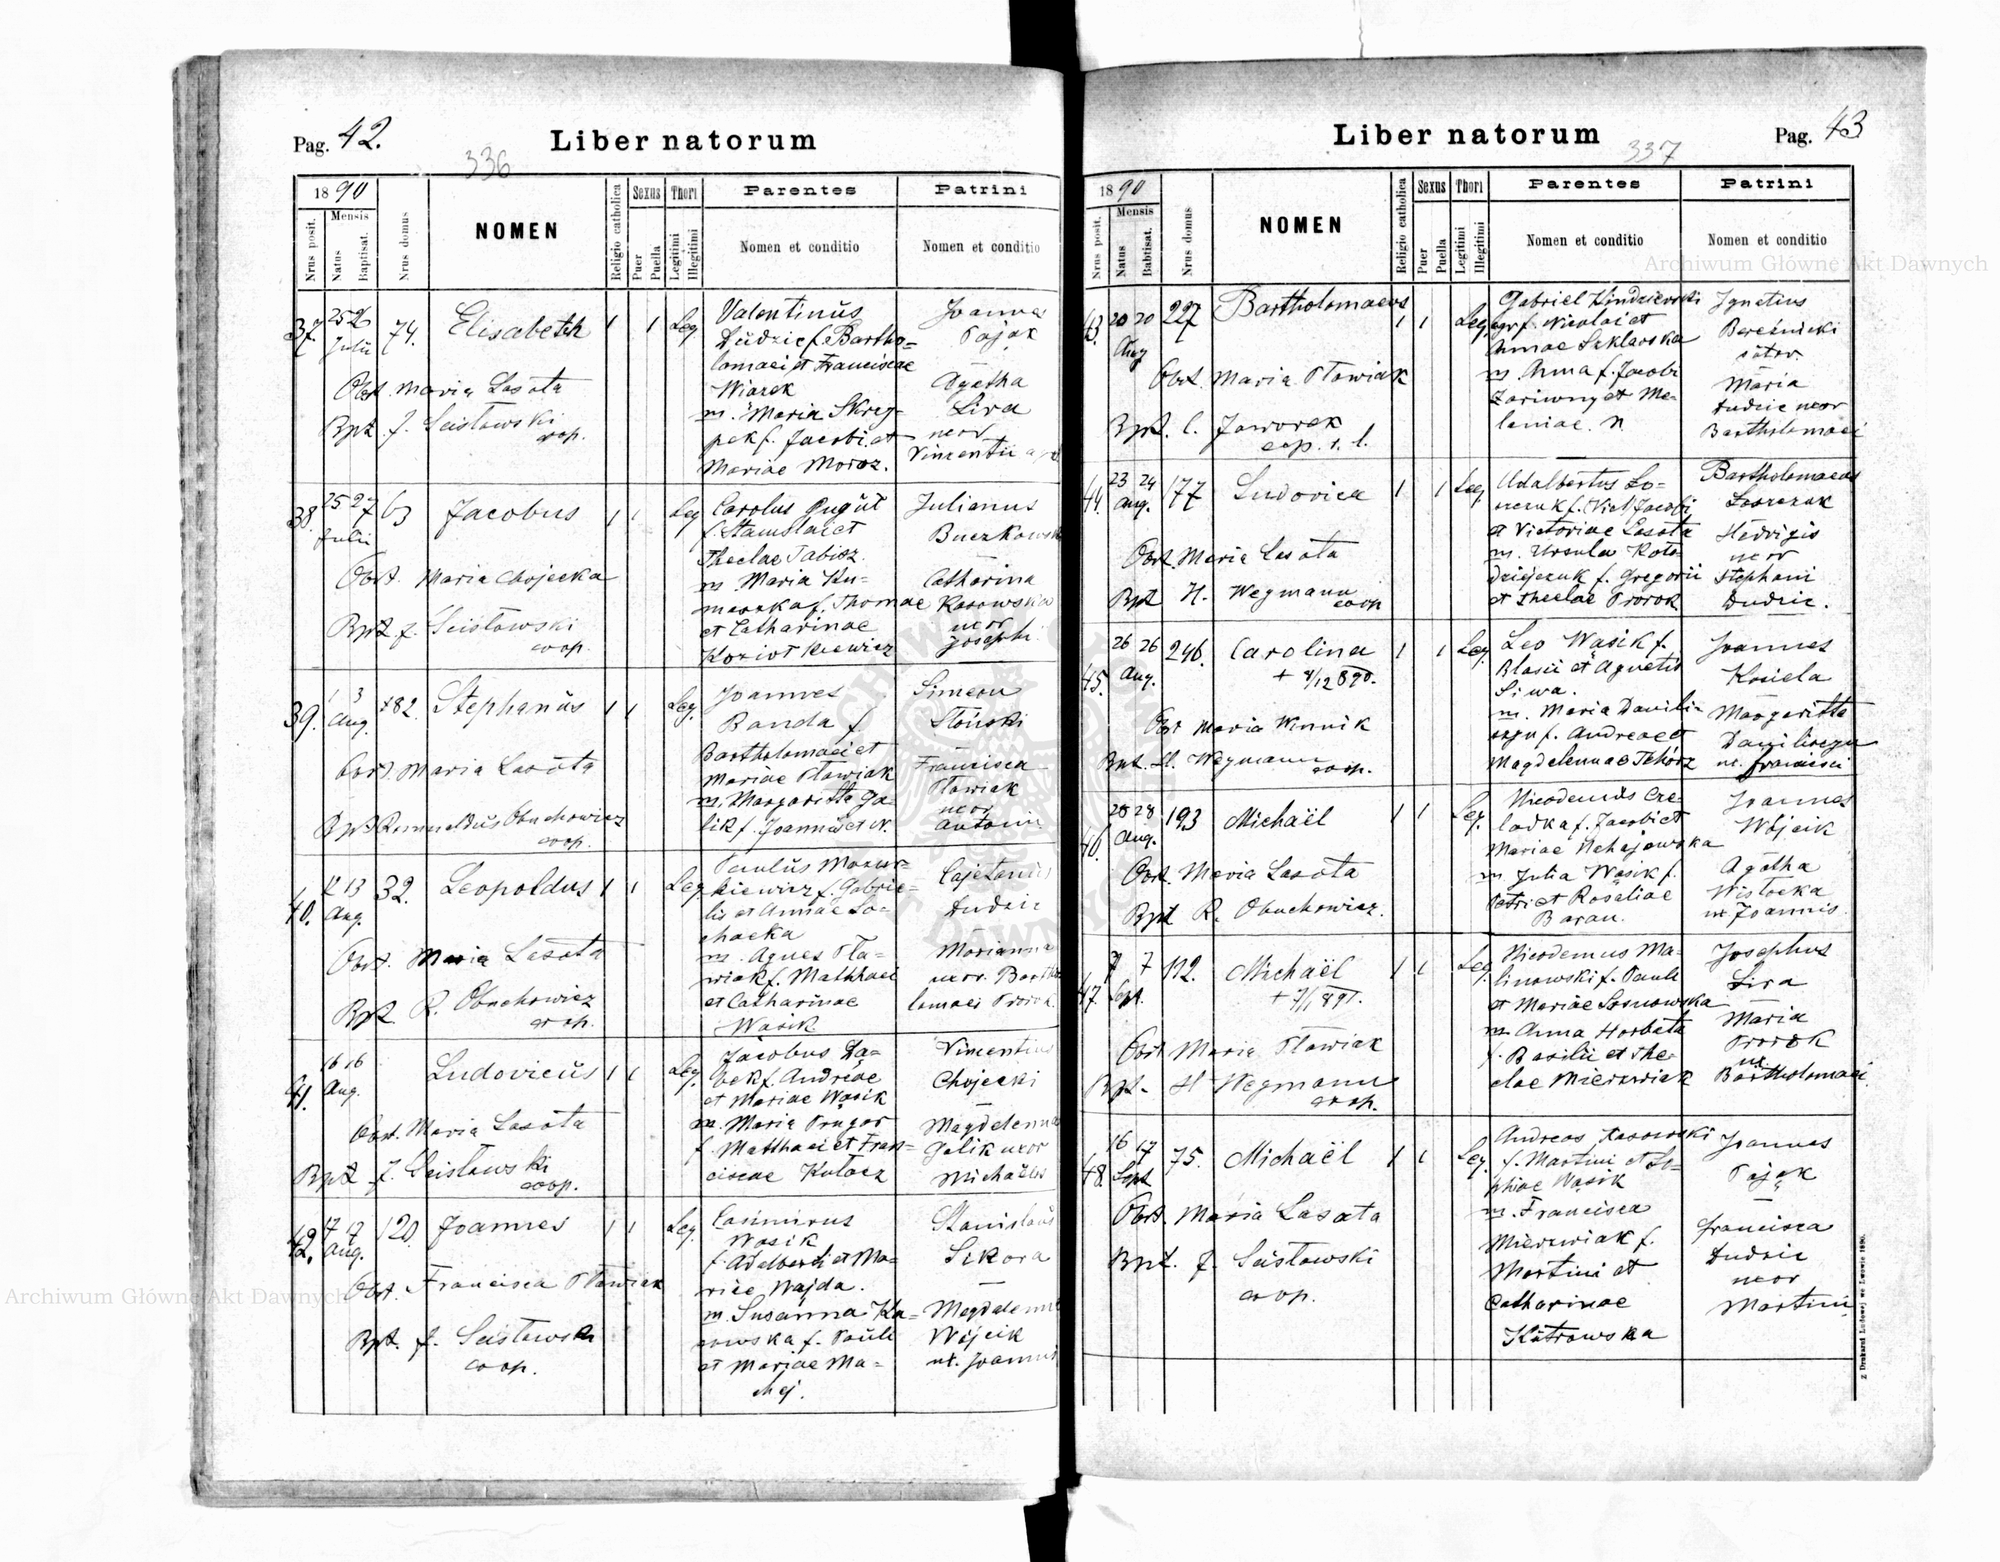 Pag. 42.
Liber natorum
336
1890
Nrus posit.
Mensis
Natus
Baptisat.
Nrus domus
NOMEN
Religio catholica
Sexus
Puer
Puella
Thori
Legitimi
Illegitimi
Parentes
Nomen et conditio
Patrini
Nomen et conditio
37. 25 26 Julii 74. Elisabeth 1 1 Leg.
Obst. Maria Lasota
Bpt. J. Scisłowski
coop.
Valentinus
Dudzic f. Bartho-
lomaei et Franciscae
Wiącek
m. Maria Skrzy-
pek f. Jacobi et
Mariae Moroz.
Joannes
Pająk
Agatha
Lira
uxor
Vincentii
38. 25 27 Julii 63 Jacobus 1 1 Leg.
Obst. Maria Chojecka
Bpt. J. Scisłowski
coop.
Carolus
f. Stanislai et
Theclae
m. Maria Ku-
f. Thomae
et Catharinae
Koziołkiewicz
Julianus
Buczkowski
Catharina
Kosowska
uxor
Josephi
39. 1 3 Aug. 182. Stephanus 1 1 Leg.
Obst. Maria Lasota
Bpt. Romualdus Obuchowicz
coop.
Joannes
Banda f.
Bartholomaei et
Mariae Pławiak
m. Margaritta Ga-
lik f. Joannis et N.
Simeon
Słoński
Francisca
Pławiak
uxor
Antonii
40. 12 13 Aug. 32. Leopoldus 1 1 Leg.
Obst. Maria Lasota
Bpt. R. Obuchowicz
coop.
Paulus Mazur-
kiewicz f. Gabrie-
lis et Annae So-
chacka
m. Agnes Pła-
wiak f. Matthaei
et Catharinae
Wąsik
Cajetanus
Dudzic
Marianna
uxor. Bartho
lomaei Prorok.
41. 16 16 Aug. Ludovicus 1 1 Leg.
Obst. Maria Lasota
Bpt. J. Scisłowski
coop.
Jacobus
f. Andreae
et Mariae Wąsik
m. Maria
f. Matthaei et Fran-
ciscae
Vincentius
Chojecki
Magdalenna
Galik uxor
Michaëlis
42. 17 17 Aug. 120. Joannes 1 1 Leg.
Obst. Francisca Pławiak
Bpt. J. Scisłowski
coop.
Casimirus
Wąsik
f. Adalberti et Ma-
riae Wajda.
m. Susanna
f. Pauli
et Mariae Ma-
chaj.
Stanislaus
Sikora
Magdalenna
Wójcik
ux. Joannis
Liber natorum
Pag. 43
337
1890
Nrus posit.
Mensis
Natus
Babtisat.
Nrus domus
NOMEN
Religio catholica
Sexus
Puer
Puella
Thori
Legitimi
Illegitimi
Parentes
Nomen et conditio
Patrini
Nomen et conditio
43. 20 20 Aug 227 Bartholomaeus 1 1 Leg.
Obst. Maria Pławiak
Bpt. C. Jaworek
coop. r. l.
Gabriel
f. Nicolai et
Annae
m. Anna f. Jacobi
et Me-
laniae. N
Ignatius
Bereźnicki
Maria
Dudzic uxor
Bartholomaei
44. 23 24 Aug. 177 Ludovica 1 1 Leg.
Obst. Maria Lasota
Bpt. H. Wegmann
coop
Adalbertus
f. Jacobi
et Victoriae Lasota
m. Ursula Koło-
dziejczuk f. Gregorii
et Theclae Prorok
Bartholomaeus
Hedvigis
uxor
Stephani
Dudzic.
45. 26 26 Aug. 246. Carolina 1 1 Leg.
+ 4/12 890.
Obst Maria Winnik
Bpt. H. Wegmann
coop.
Leo Wąsik f.
Blasii et Agnetis
Siwa.
m. Maria Danili-
szyn f. Andreae et
Magdalennae Tchórz
Joannes
Kosiela
Margaritta
Daniliszyn
ux. Francisci
46. 28 28 Aug. 193 Michaël 1 1 Leg.
Obst. Maria Lasota
Bpt R. Obuchowicz.
Nicodemus Cze-
ladka f. Jacobi et
Mariae
m. Julia Wąsik f.
Petri et Rosaliae
Baran.
Joannes
Wójcik
Agatha
Wisłocka
ux Joannis.
47. 7 7 Sept. 112. Michaël 1 1 Leg.
+ 7/1 891.
Obst Maria Pławiak
Bpt. H Wegmann
coop.
Nicodemus Ma-
linowski f. Pauli
et Mariae Sosnowska
m. Anna Horbata
f. Basilii et The-
clae Mierzwiak
Josephus
Lira
Maria
Prorok
ux
Bartholomaei
48. 16 17 Sept 75. Michaël 1 1 Leg.
Obst. Maria Lasota
Bpt. J. Scisłowski
coop.
Andreas Kosowski
f. Martini et So-
phiae Wąsik
m. Francisca
Mierzwiak f.
Martini et
Catharinae
Kutrowska
Joannes
Pająk
Francisca
Dudzic
uxor
Martini
Z Drukarni Ludowej we Lwowie 1890.
Archiwum Główne Akt Dawnych
Archiwum Główne Akt Dawnych